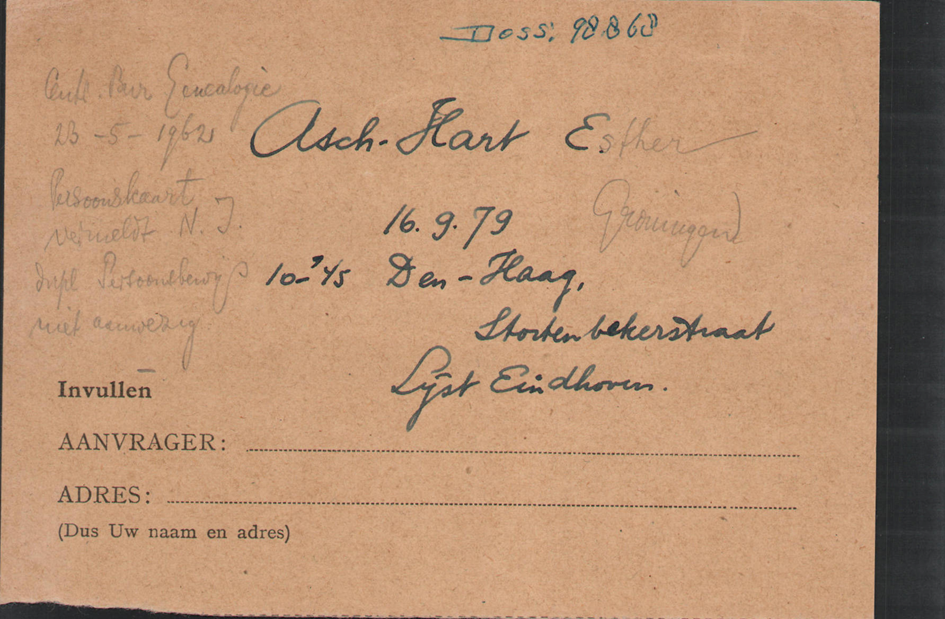 Doss: 98868
Centr. Bur Genealogie
23-5-1962
Asch-Hart Esther
Persoonskaart
vermeldt N. I.
16.9.79 Groningen
dupl Persoonsbewijs
niet aanwezig.
Den-Haag,
Stortenbekerstraat
Lijst Eindhoven.
Invullen
AANVRAGER:
ADRES:
(Dus Uw naam en adres)